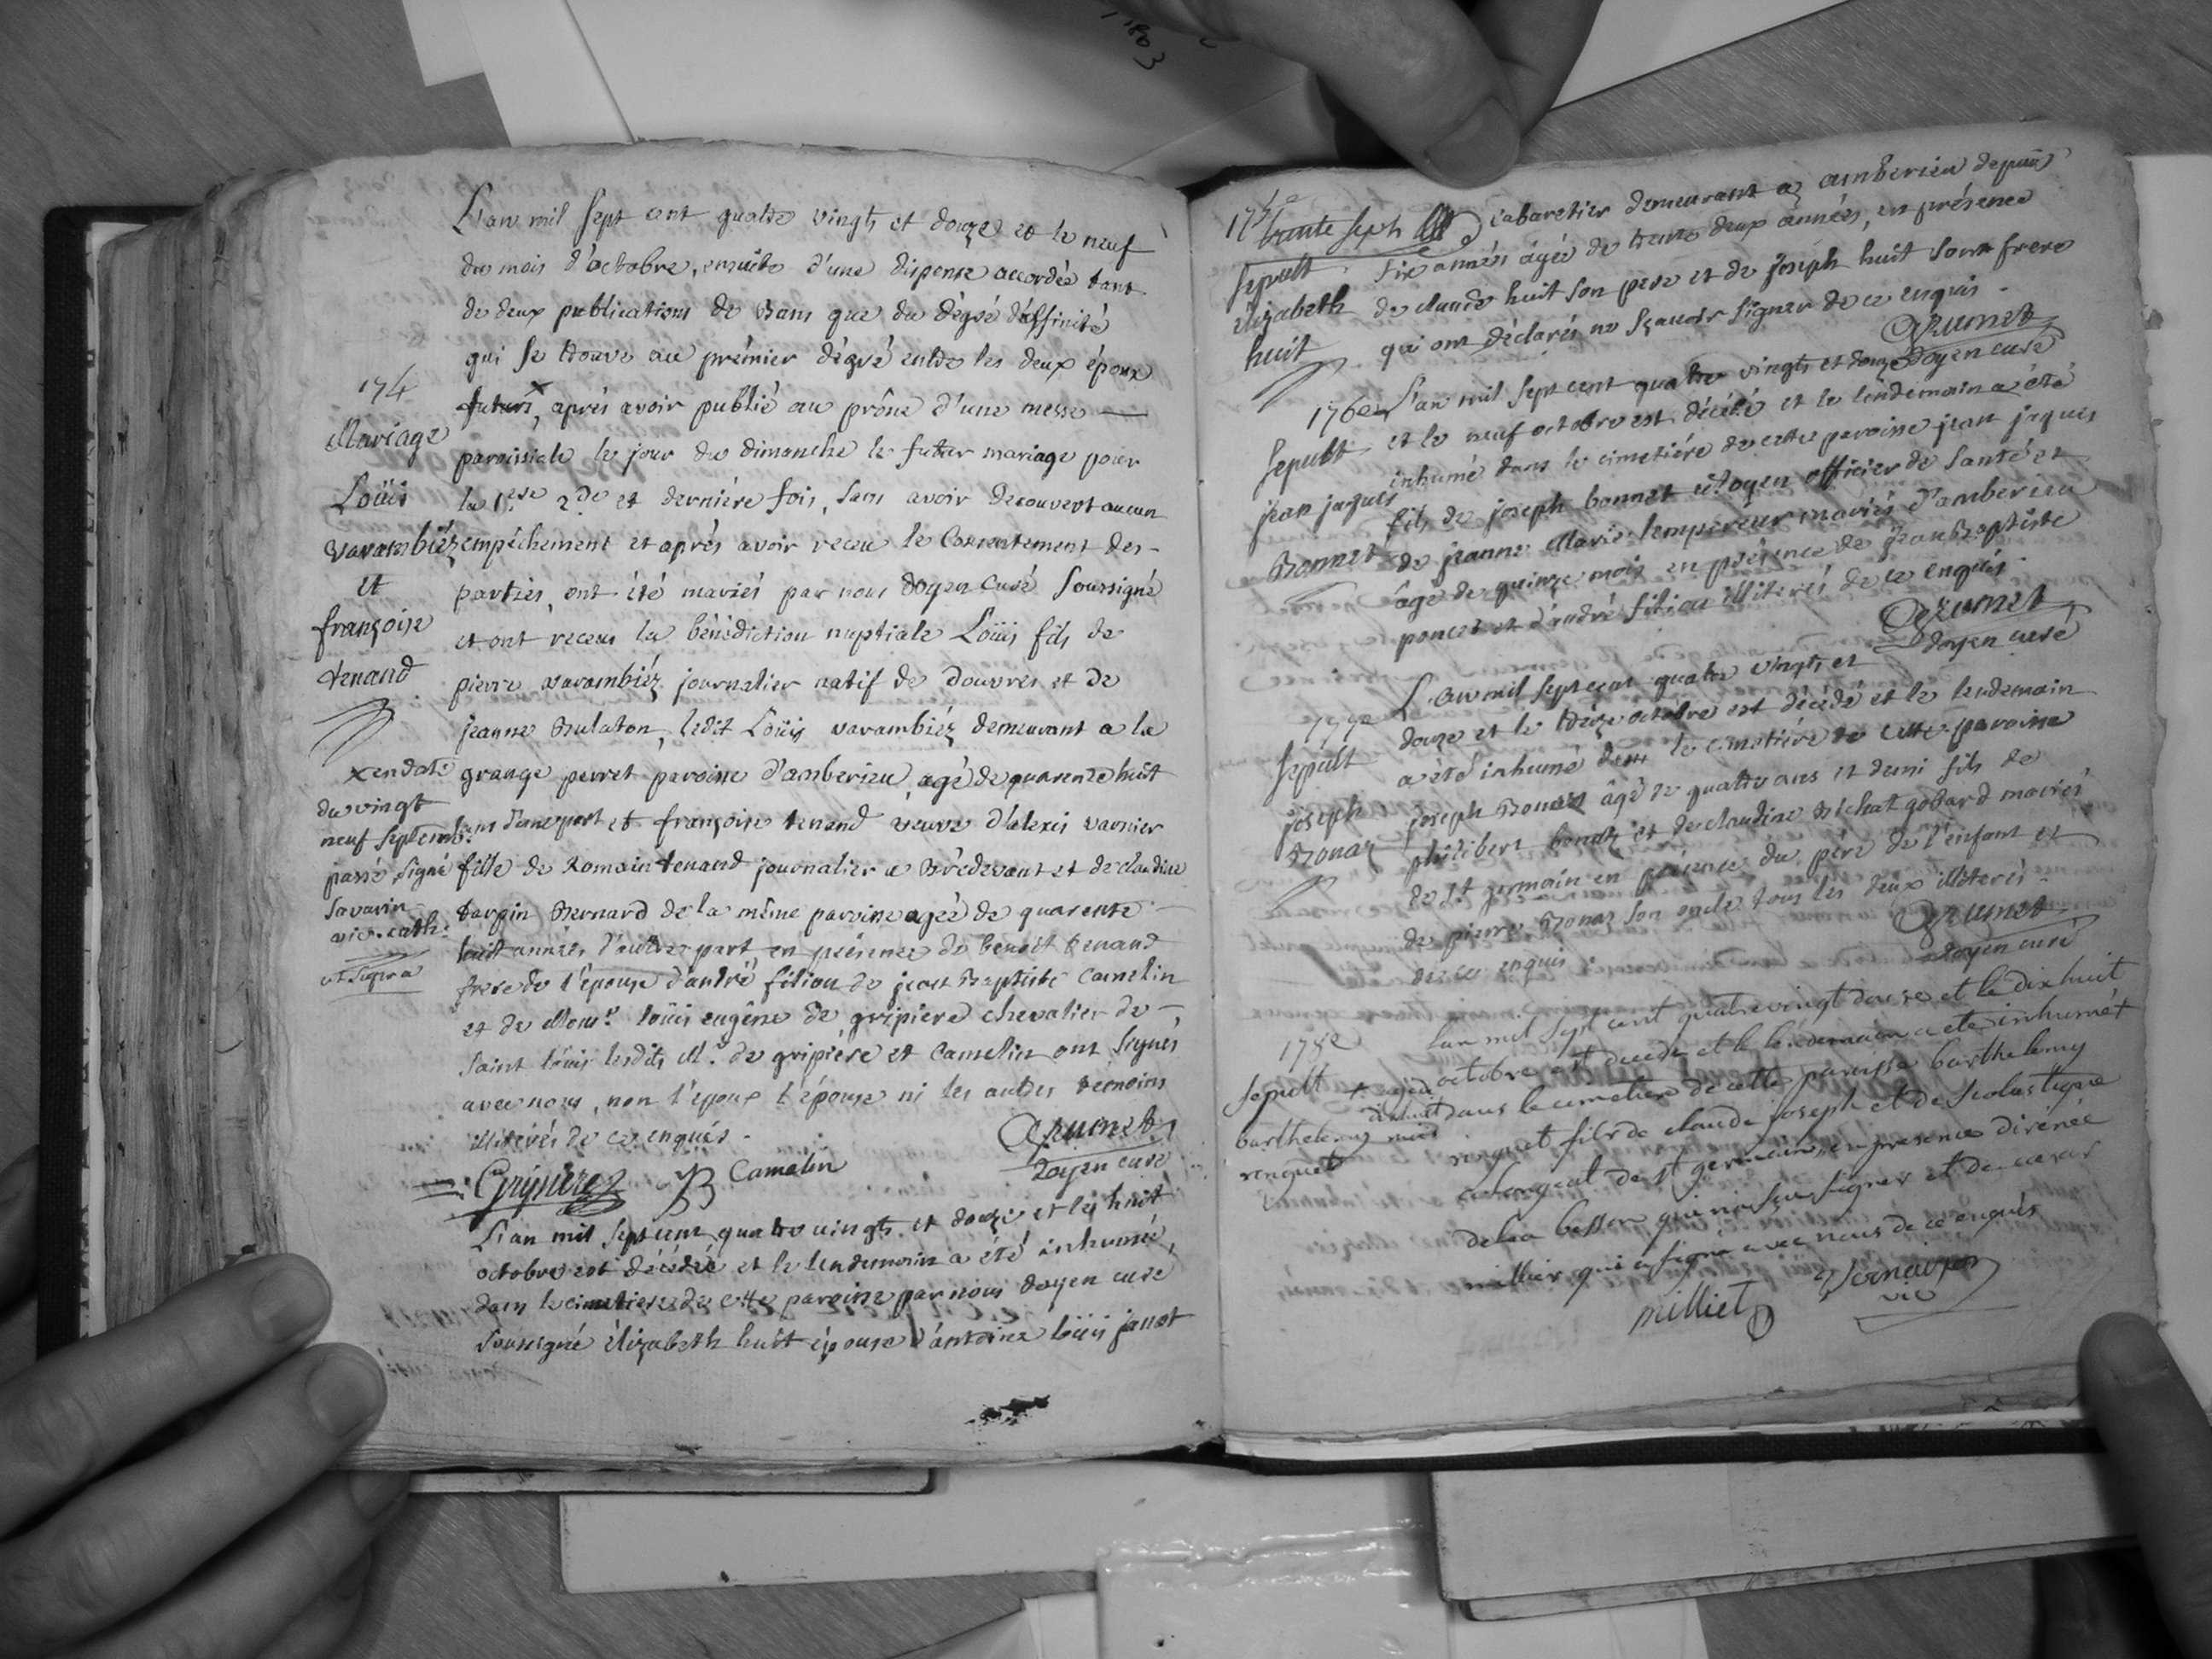 1803
L'an mil sept cent quatre vingts et douze et le neuf
du mois d'octobre, ensuite d'une dispense accordée tant
de deux publications de Bans que du dégré d'affinité
qui se trouve au prémier dégré entre les deux époux
futurs, aprés avoir publié au prône d'une messe —
paroissiale le jour du dimanche le futur mariage pour
la 1ere 2de et derniére fois, sans avoir decouvert aucun
empéchement et aprés avoir receu le Consentement des -
parties, ont été mariés par nous doyen Curé soussigné
et ont receus la bénédiction nuptiale Loüis fils de
pierre varambiéz journalier natif de douvres et de
jeanne Bulaton, ledit Loüis varambiéz demeurant a la
grange perret paroisse d'amberieu, agé de quarente huit
ans d'une part et françoise tenand veuve d'alexis varnier
fille de Romain tenand journalier a Brédevent et de claudine
tarpin Bernard de la même paroisse agée de quarente -
huit années l'autre part, en présence de benoit tenand
frere de l'épouse d'andré filiou de jean Baptiste Camelin
et de Monsr. loüis eugêne de gripiere chevalier de -
saint loüis lesdits Mr. de gripiere et Camelin ont signés
avec nous, non l'époux l'épouse ni les autres témoins
illiterés de ce enquis.
174
Mariage
Loüis
varambiéz
et
françoise
tenand
x en date
du vingt
neuf septemb.
passé signé
savarin
vic. cath.
ut supra
Gripiere JB Camelin
doyen curé
L'an mil sept cent quatre vingts et douze et le huit
octobre est décédée et le lendemain a été inhumée,
dans le cimetiere de cette paroisse par nous doyen curé
soussigné élizabeth huit épouse d'antoine loüis janot
175e
trente sept
sepult
élizabeth
huit
cabaretier demeurant a amberieu depuis
six années âgée de trente deux années, en présence
de claude huit son pere et de joséph huit son frere
qui ont déclarés ne sçavoir signer de ce enquis.
doyen curé
176e
Sepult
jean jaques
Bonnet
L'an mil sept cent quatre vingts et douze
et le neuf octobre est décédé et le lendemain a été
inhumé dans le cimetiére de cette paroisse jean jaques
fils de joseph bonnet citoyen officier de santé et
de jeanne Marie lempereur mariés d'amberieu
âgé de quinze mois en présence de jean Baptiste
poncet et d'andré filiou illiterés de ce enquis.
doyen curé
177e
sepult
joseph
Bonaz
L'an mil sept cent quatre vingts et
douze et le treize octobre est décédé et le lendemain
a été inhumé dans le cimetiére de cette paroisse
joseph Bonaz âgé de quatre ans et demi fils de
philibert bonaz et de claudine Michat gobard mariés
de st germain en présence du pére de l'enfant et
de pierre Bonaz son oncle tous les deux illiterés
de ce enquis.
doyen curé
178e
Sepult
barthelemy
renguet
† agé
d'huit
mois
L'an mil sept cent quatre vingt douze et le dix huit
octobre est decede et le lendemain a ete inhumét
dans le cimetiere de cette paroisse barthelemy
renguet fils de claude joseph et de scolastique
de st germain, en presence d'irenée
de la besson qui n'a sçu signer et de cesar
milliet qui a signé avec nous de ce enquis
milliet
vic